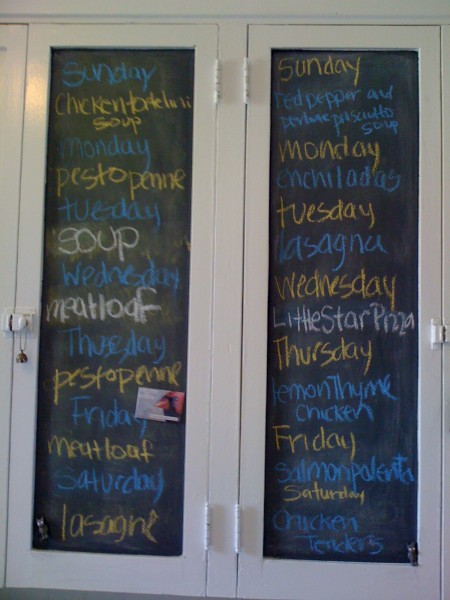 Sunday
Chicken tortelini
soup
monday
pesto penne
tuesday
soup
Wednesday
meatloaf
Thusday
pesto penne
Friday
meatloaf
Saturday
lasagne
Sunday
red pepper and
prisciutto
soup
monday
enchiladas
tuesday
lasagna
Wednesday
Little Star Pizza
Thursday
lemon Thyme
Chicken
Friday
Salmon polenta
Saturday
Chicken
Tenders